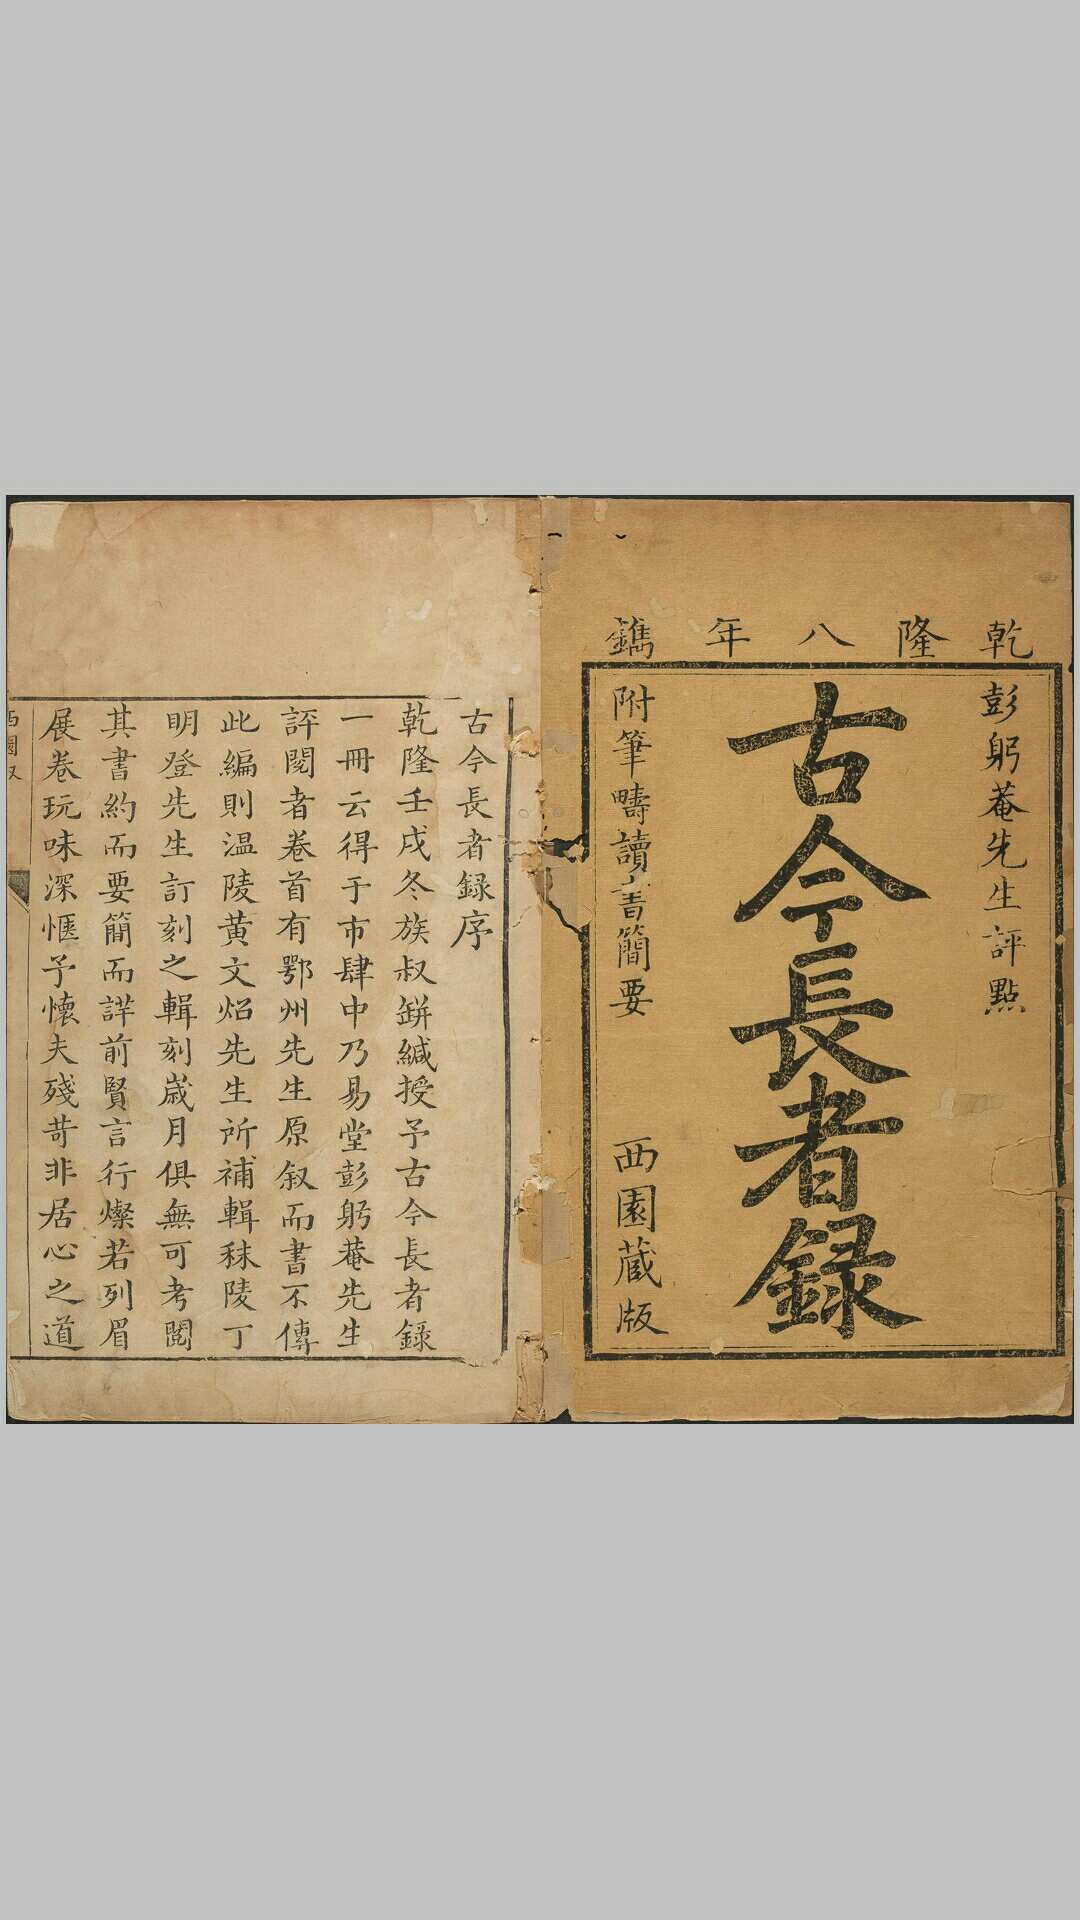 乾隆八年鐫
彭躬菴先生評點
古今長者録
附筆疇讀書簡要
西園蔵版
古今長者録序
乾隆壬戌冬族叔鉼緘授予古今長者錄
一冊云得于市肆中乃易堂彭躬菴先生
評閱者卷首有鄂州先生原叙而書不傳
此編則温陵黄文炤先生所補輯秣陵丁
明登先生訂刻之輯刻歲月俱無可考閱
其書約而要簡而詳前賢言行燦若列眉
展卷玩味深愜予懷夫殘苛非居心之道